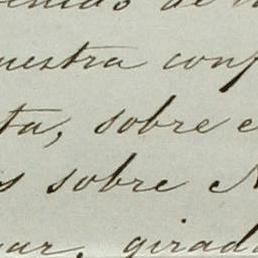 de
uestra conf
ta, sobre e
s sobre N
ar, girad